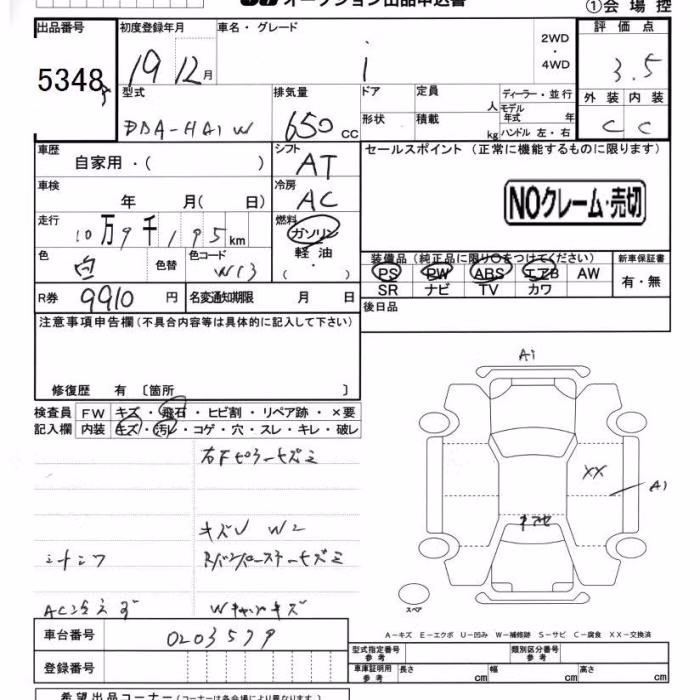 オークション出品申込書
①会場控
出品番号 初度登録年月 車名・グレード 2WD・4WD 評価点
5348 19 12月 i 3.5
型式 排気量 ドア 定員 人 ディーラー・並行 外装 内装
DBA-HA1W 650cc 形状 積載 kg モデル年式 年 C C
ハンドル 左・右
車歴 自家用・( ) シフト AT セールスポイント (正常に機能するものに限ります)
車検 年 月( 日) 冷房 AC
NOクレーム・売切
走行 10万9千195km 燃料 ガソリン
軽油
( ・ )
色 白 色替 色コード W13
装備品(純正品に限り○をつけてください) 新車保証書
PS PW ABS エアB AW 有・無
SR ナビ TV カワ
R券 9910円 名変通知期限 月 日
後日品
注意事項申告欄(不具合内容等は具体的に記入して下さい)
修復歴 有 〔箇所 〕
検査員 FW キズ・飛石・ヒビ割・リペア跡・×要
記入欄 内装 キズ・汚レ・コゲ・穴・スレ・キレ・破レ
A1
XX
A1
キズ W2
W キズ
スペア
A-キズ E-エクボ U-凹み W-補修跡 S-サビ C-腐食 XX-交換済
車台番号 0203579
登録番号
型式指定番号 参考 類別区分番号 参考
車庫証明用 参考 長さ cm 幅 cm 高さ cm
希望出品コーナー(コーナーは各会場により異なります)